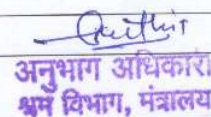 अनुभाग अधिकारी
श्रम विभाग, मंत्रालय